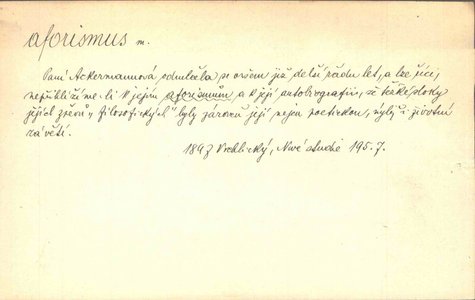 aforismus m.
Paní Ackermannová odmlčela se ovšem již delší řadu let, a lze říci,
nepřihlížíme-li k jejím aforismům a k její autobiografii, že
jejích zpěvů „filosofických" byly zároveň její nejen poetickou, nýbrž i životní
závětí.
1897 Vrchlický, Nové studie 195.7.